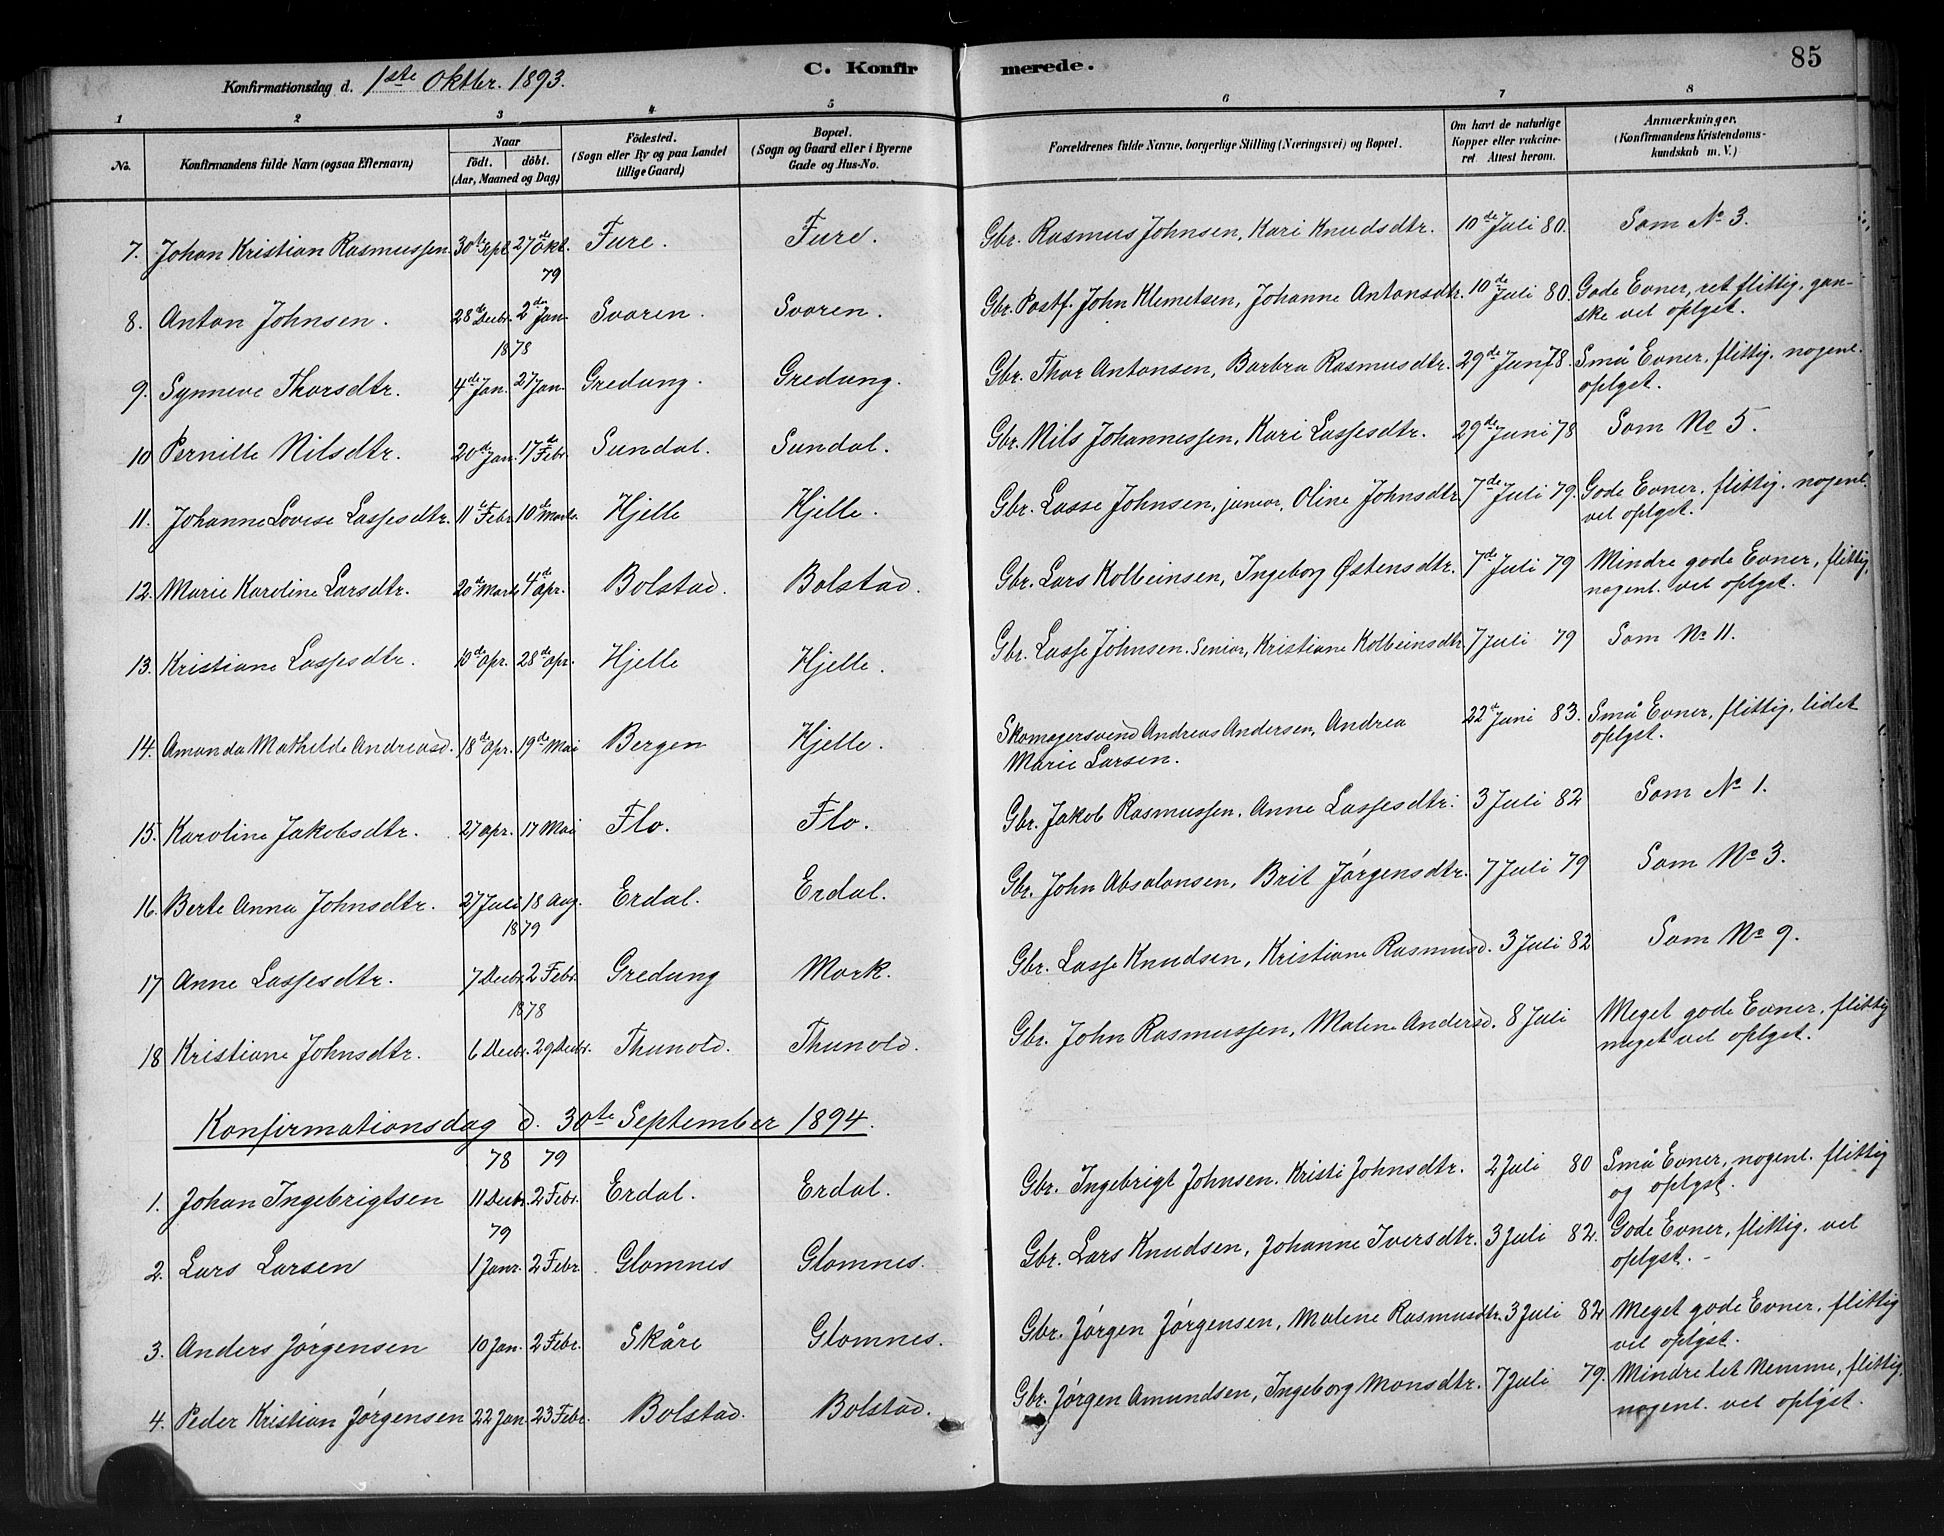 85
Konfirmationsdag d. 1ste Oktbr. 1893.
C. Konfirmerede.
1 2 3 4 5 6 7 8
No. Konfirmandens fulde Navn (ogsaa Efternavn)
Naar
födt. döbt.
(Aar, Maaned og Dag)
Födested.
(Sogn eller By og paa Landet
tillige Gaard)
Bopæl.
(Sogn og Gaard eller i Byerne
Gade og Hus-No.
Forældrenes fulde Navne, borgerlige Stilling (Næringsvei) og Bopæl.
Om havt de naturlige
Kopper eller vakcine-
ret Attest herom.
Anmærkninger.
(Konfirmandens Kristendoms-
kundskab m. V.)
7. Johan Kristian Rasmussen 30te Sept. 27de Okt. Fure. Fure. Gbr. Rasmus Johnsen, Kari Knudsdtr. 10de Juli 80. Som No 3.
79
8. Anton Johnsen. 28de Decbr. 2de Jan. Svoren. Svoren. Gbr. Postf. John Klemetsen, Johanne Antonsdtr. 10de Juli 80. Gode Evner, ret flittig, gan-
ske vel oplyst.
1878
9. Synneve Thorsdtr. 4de Jan. 27 Jan. Gredung. Gredung. Gbr. Thor Antonsen, Barbra Rasmusdtr. 29de Juni 78. Små Evner, flittig. nogenl.
oplyst.
10 Pernille Nilsdtr. 20de Jan. 17de Febr. Sundal. Sundal. Gbr. Nils Johannessen, Kari Lassesdtr. 29de Juni 78 Som No 5.
11. Johanne Lovise Lassesdtr. 11te Febr. 10de Marts. Hjelle Hjelle. Gbr. Lasse Johnsen, junior, Oline Johnsdtr. 7de Juli 79. Gode Evner, flittig. nogenl.
vel oplyst.
12. Marie Karoline Larsdtr. 20de Marts 4de Apr. Bolstad. Bolstad. Gbr. Lars Kolbeinsen, Ingeborg Østensdtr. 7de Juli 79 Mindre gode Evner, flittig,
nogenl. vel oplyst.
13. Kristiane Lassesdtr. 10de Apr. 28de Apr. Hjelle Hjelle. Gbr. Lasse Johnsen. Senior, Kristiane Kolbeinsdtr. 7 Juli 79 Som No 11.
14. Amanda Mathilde Andreasd. 18de Apr. 19de Mai Bergen Hjelle. Skomagersvend Andreas Andersen, Andrea
Marie Larsen. 22de Juni 83. Små Evner, flittig, lidet
oplyst.
15. Karoline Jakobsdtr. 27 Apr. 17 Mai Flo. Flo. Gbr. Jakob Rasmussen. Anne Lassesdtr. 3 Juli 82 Som No 1.
16. Berte Anna Johnsdtr. 27 Juli 18 Aug. Erdal. Erdal. Gbr. John Absalonsen, Brit Jørgensdtr. 7 Juli 79 Som No 3.
1879
17 Anne Lassesdtr. 7 Decbr. 2 Febr. Gredung Mork. Gbr. Lasse Knudsen, Kristiane Rasmusd. 3 Juli 82 Som No 9.
1878
18 Kristiane Johnsdtr. 6 Decbr. 29 Decbr. Thunold. Thunold. Gbr. John Rasmussen, Malene Andersd. 8 Juli Meget gode Evner, flittig
meget vel oplyst.
Konfirmationsdag d. 30te September 1894.
78 79
1. Johan Ingebrigtsen 11 Decbr. 2 Febr. Erdal. Erdal. Gbr. Ingebrigt Johnsen. Kristi Johnsdtr. 2 Juli 80 Små Evner, nogenl. flittig
og oplyst.
79
2. Lars Larsen 1 Janr. 2 Febr. Glomnes Glomnes. Gbr. Lars Knudsen, Johanne Iversdtr. 3 Juli 82. Gode Evner, flittig. vel
oplyst. -
3. Anders Jørgensen 10 Jan. 2 Febr. Skåre Glomnes. Gbr. Jørgen Jørgensen, Malene Rasmusdtr. 3 Juli 82 Meget gode Evner, flittig
vel oplyst.
4. Peder Kristian Jørgensen 22 Jan. 23 Febr. Bolstad. Bolstad. Gbr. Jørgen Amundsen, Ingeborg Monsdtr. 7 Juli 79. Mindre let Nemme, flittig,
nogenl. vel oplyst.